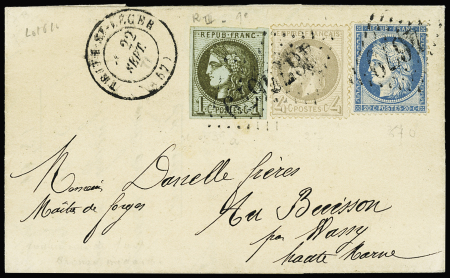 TRITH-ST-LEGER
22
SEPT.
REPUB · FRANC ·
1 C · POSTES · C · 1
POSTES
20 C POSTES 20 C
Monsieur Danelle frères
Maître de forges
Au Buisson
par Wassy
haute Marne